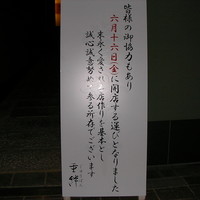 皆様の御協力もあり
六月十六日(金)に開店する運びとなりました
末永く愛される店作りを基本とし
誠心誠意努めて参る所存でございます